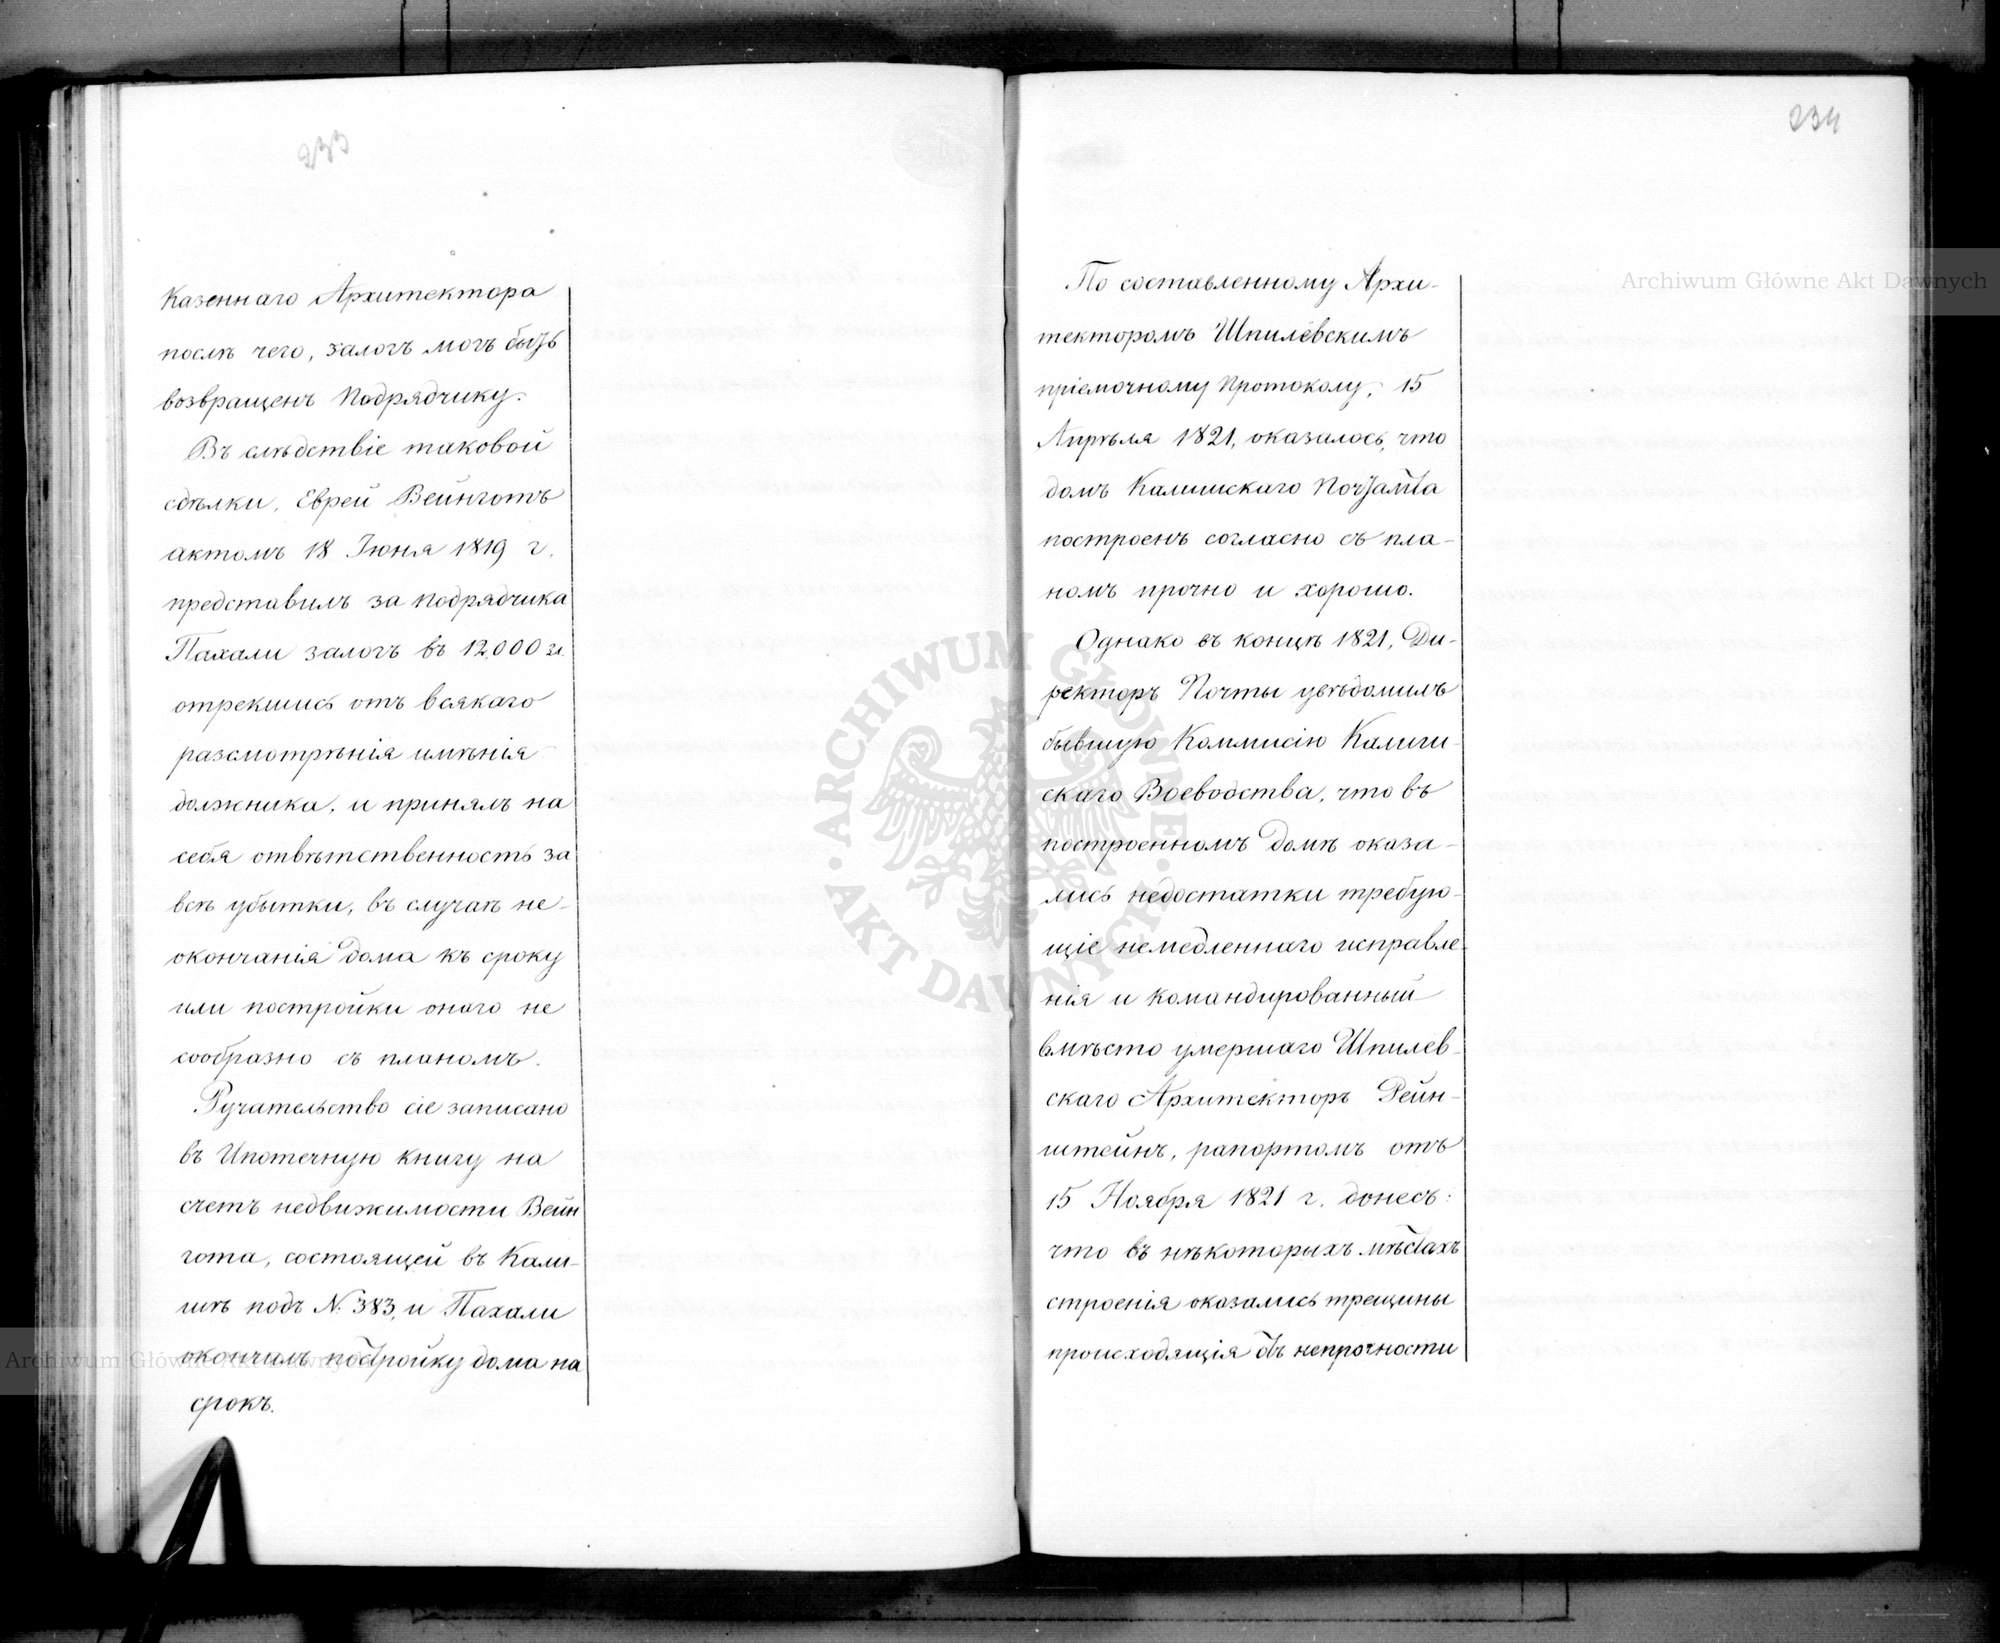 233
казеннаго Архитектора
послѣ чего, залогъ могъ быть
возвращенъ подрядчику.
Въ слѣдствіе таковой
сдѣлки, Еврей Вейнготъ
актомъ 18 Іюня 1819 г.
представилъ за подрядчика
Пахали залогъ въ 12,000 зл.
отрекшись отъ всякаго
разсмотрѣнія имѣнія
должника, и принялъ на
себя отвѣтственность за
всѣ убытки, въ случаѣ не-
окончанія дома къ сроку
или постройки онаго не
сообразно съ планомъ.
Ручательство сіе записано
въ Ипотечную книгу на
счетъ недвижимости Вейн
гота, состоящей въ Кали-
шѣ подъ N. 383, и Пахали
окончилъ постройку дома на
срокъ.
234
По составленному Архи-
текторомъ Шпилевскимъ
пріемочному протоколу, 15
Апрѣля 1821, оказалось, что
домъ Калишскаго Почтамта
построенъ согласно съ пла-
номъ прочно и хорошо.
Однако въ концѣ 1821, Ди-
ректоръ Почты увѣдомилъ
бывшую Коммисію Калиш-
скаго Воеводства, что въ
построенномъ домѣ оказа-
лись недостатки требую-
щіе немедленнаго исправле-
нія и командированный
вмѣсто умершаго Шпилев-
скаго Архитекторъ Рейн-
штейнъ, рапортомъ отъ
15 Ноября 1821 г. донесъ:
что въ нѣкоторыхъ мѣстахъ
строенія оказались трещины
происходящія отъ непрочности
Archiwum Główne Akt Dawnych
ARCHIWUM GŁÓWNE · AKT DAWNYCH ·
Archiwum Główne Akt Dawnych